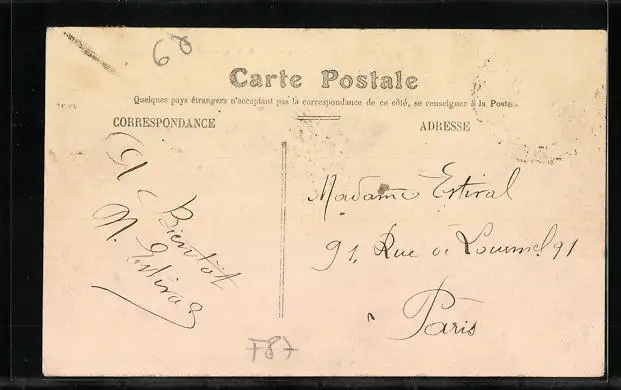 60
Carte Postale
Quelques pays étrangers n'acceptant pas la correspondance de ce côté, se renseigner à la Poste.
CORRESPONDANCE
ADRESSE
A Bientôt
N. Estival
Madame Estival
91, Rue de Lourmel 91
Paris
F87